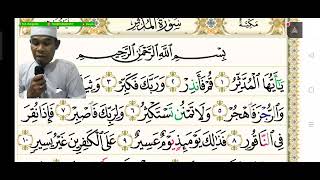 سُوْرَةُ الْمُدَّثِّرِ
بِسْمِ اللّٰهِ الرَّحْمٰنِ الرَّحِيْمِ
يٰٓاَيُّهَا الْمُدَّثِّرُ ۙ ١ قُمْ فَاَنْذِرْ ۖ ٢ وَرَبَّكَ فَكَبِّرْ ۖ ٣ وَثِيَا
وَالرُّجْزَ فَاهْجُرْ ۖ وَلَا تَمْنُنْ تَسْتَكْثِرُ ۖ ٦ وَلِرَبِّكَ فَاصْبِرْ ۗ ٧ فَاِذَا نُقِرَ
فِى النَّاقُوْرِ ۙ ٨ فَذٰلِكَ يَوْمَىِٕذٍ يَّوْمٌ عَسِيْرٌ ۙ ٩ عَلَى الْكٰفِرِيْنَ غَيْرُ يَسِيْرٍ ١٠